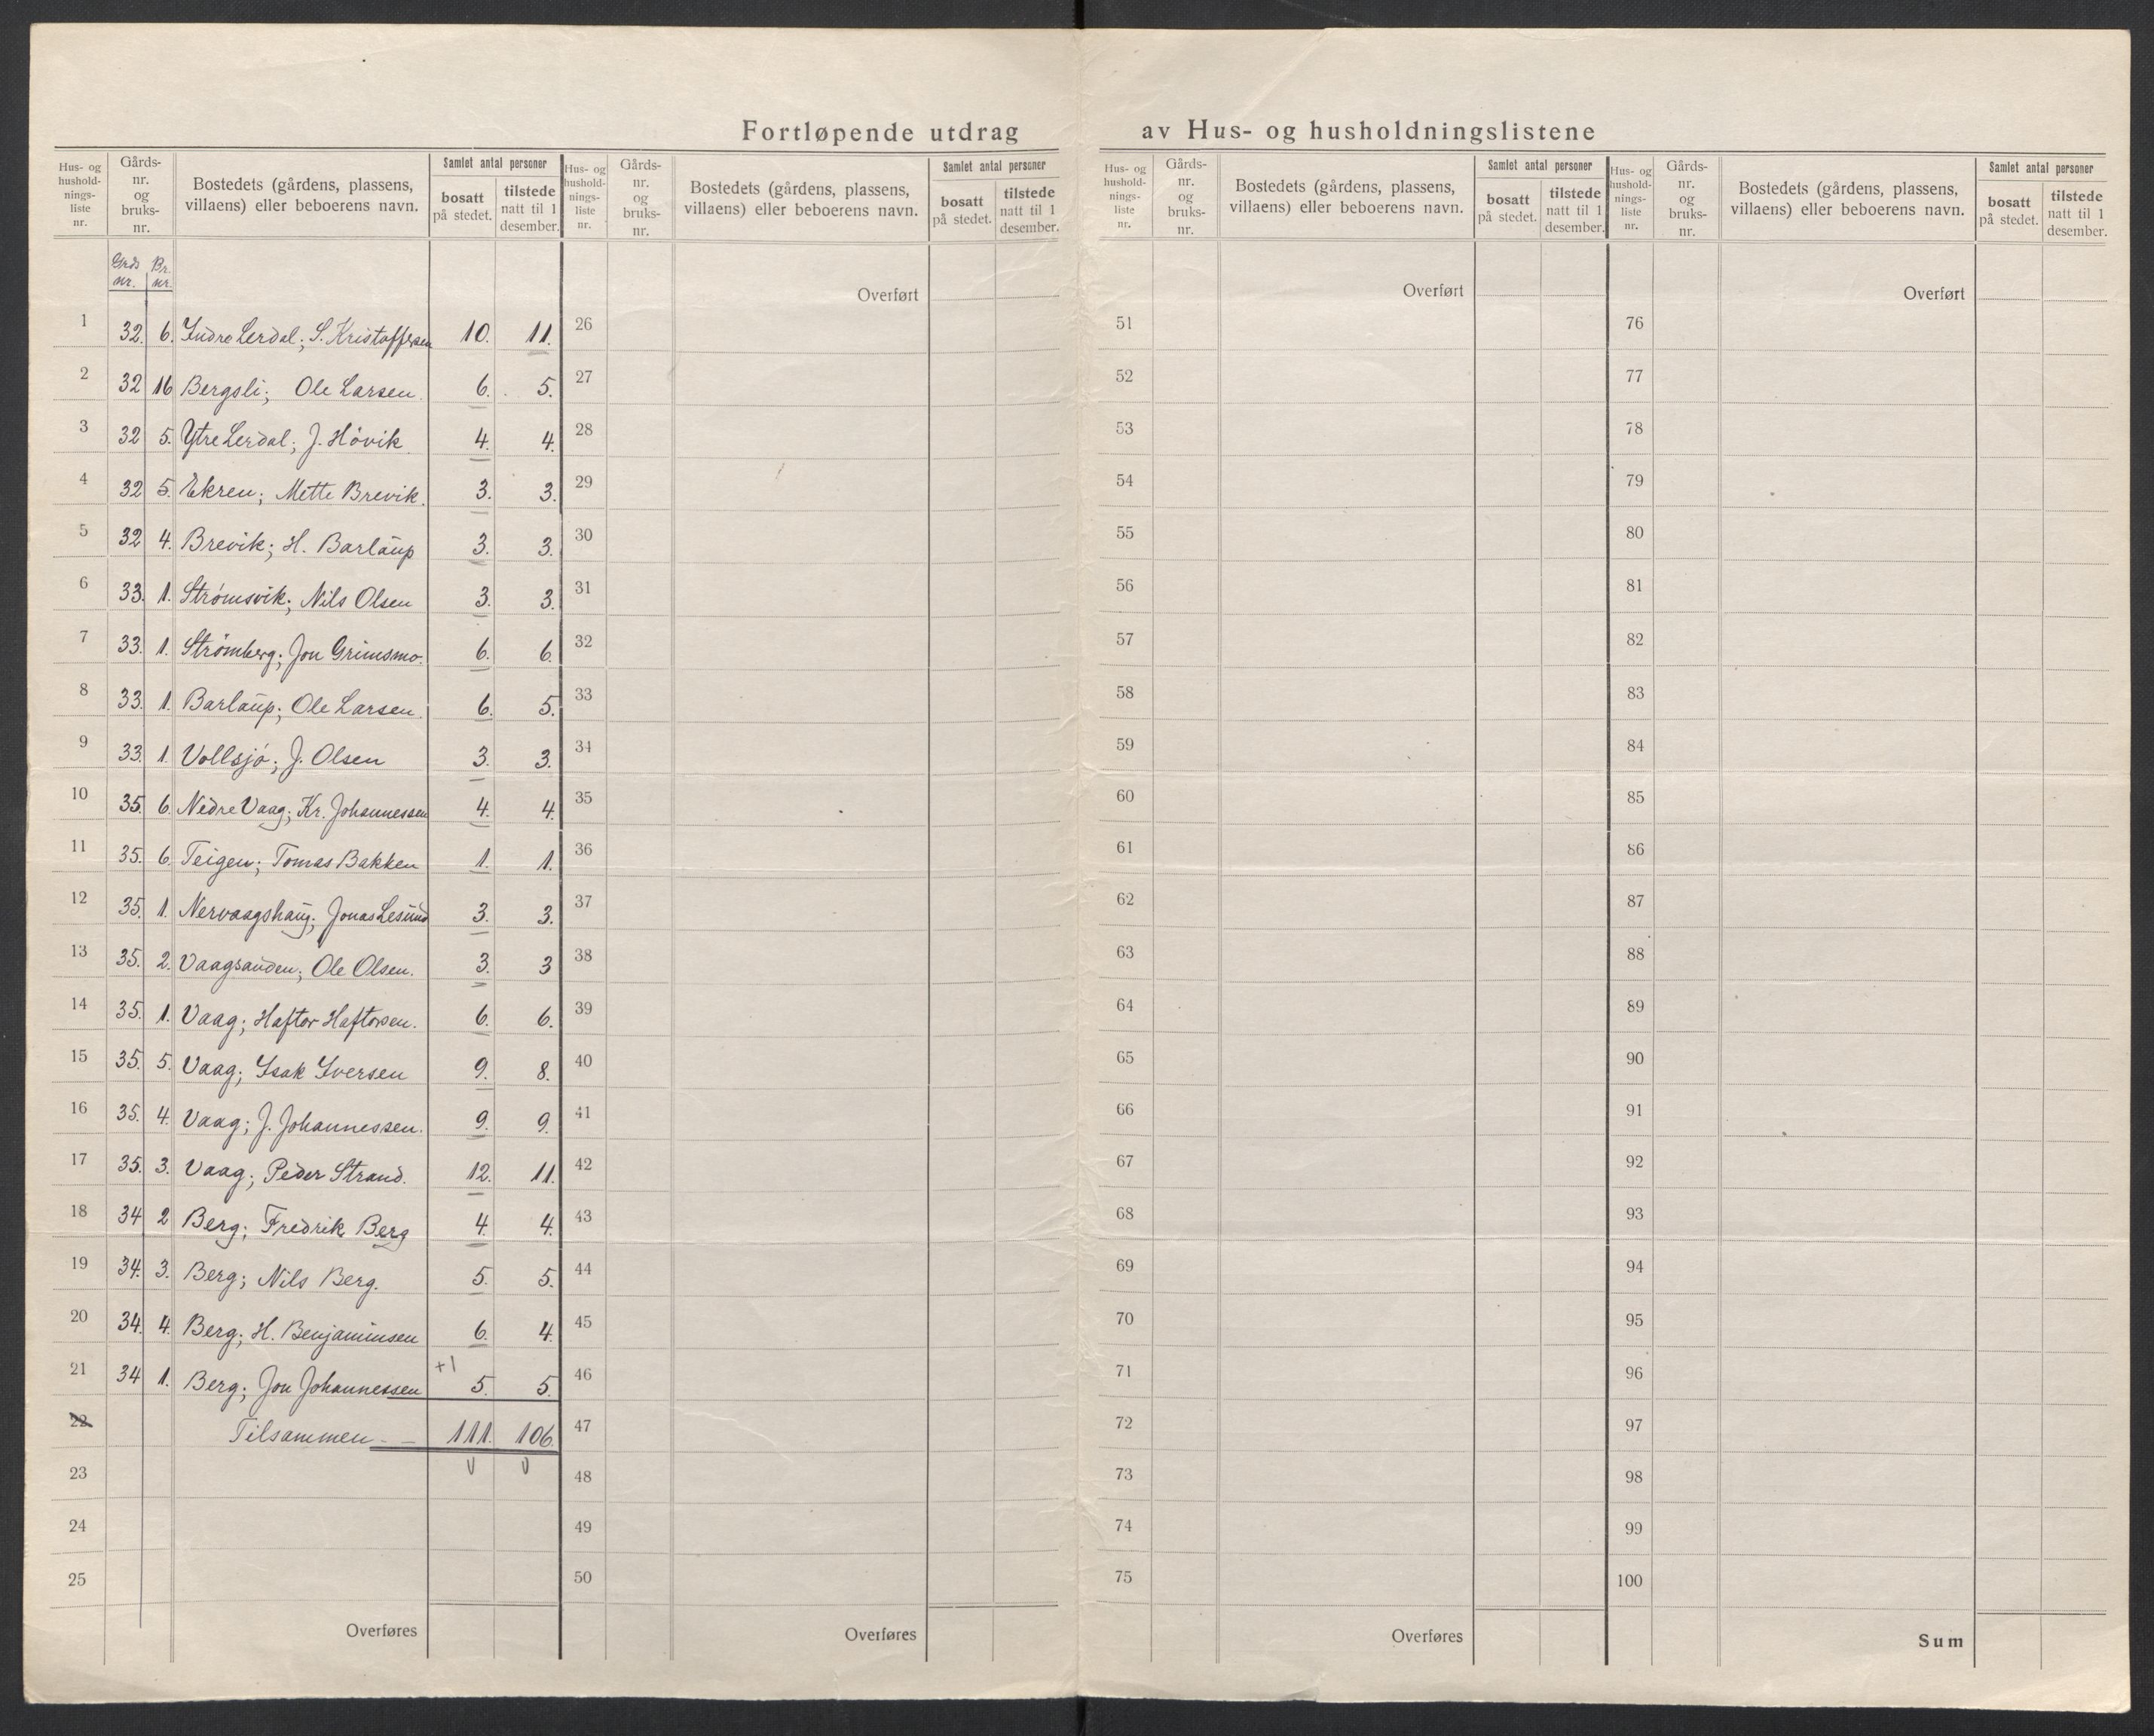 Fortløpende utdrag av Hus- og husholdningslistene
Hus- og hushold-nings-liste nr. Gårds-nr. og bruks-nr. Bostedets (gårdens, plassens, villaens) eller beboerens navn. Samlet antal personer bosatt på stedet. tilstede natt til 1 desember.
Hus- og hushold-nings-liste nr. Gårds-nr. og bruks-nr. Bostedets (gårdens, plassens, villaens) eller beboerens navn. Samlet antal personer bosatt på stedet. tilstede natt til 1 desember.
Hus- og hushold-nings-liste nr. Gårds-nr. og bruks-nr. Bostedets (gårdens, plassens, villaens) eller beboerens navn. Samlet antal personer bosatt på stedet. tilstede natt til 1 desember.
Hus- og hushold-nings-liste nr. Gårds-nr. og bruks-nr. Bostedets (gårdens, plassens, villaens) eller beboerens navn. Samlet antal personer bosatt på stedet. tilstede natt til 1 desember.
Grds nr. Br. nr. Overført Overført Overført
1 32. 6. Indre Lerdal; S. Kristoffersen 10. 11. 26 51 76
2 32 16 Bergsli; Ole Larsen. 6. 5. 27 52 77
3 32 5. Ytre Lerdal; J. Hövik. 4. 4. 28 53 78
4 32 5. Ekren; Mette Brevik. 3. 3. 29 54 79
5 32 4. Brevik; H. Barlaup 3. 3. 30 55 80
6 33. 1. Strömsvik; Nils Olsen 3. 3. 31 56 81
7 33. 1. Strömberg; Jon Grimsmo. 6. 6. 32 57 82
8 33. 1. Barlaup; Ole Larsen. 6. 5. 33 58 83
9 33. 1. Vollsjö; J. Olsen 3. 3. 34 59 84
10 35. 6. Nedre Vaag; Kr. Johannessen 4. 4. 35 60 85
11 35. 6. Teigen; Tomas Bakken 1. 1. 36 61 86
12 35. 1. Nervaagshaug; Jonas Lesund 3. 3. 37 62 87
13 35. 2. Vaagsanden; Ole Olsen. 3. 3 38 63 88
14 35. 1. Vaag; Haftor Haftorsen. 6. 6. 39 64 89
15 35. 5. Vaag; Isak Iversen 9. 8. 40 65 90
16 35. 4. Vaag; J. Johannessen. 9. 9. 41 66 91
17 35. 3. Vaag; Peder Strand. 12. 11. 42 67 92
18 34 2 Berg; Fredrik Berg 4. 4. 43 68 93
19 34. 3. Berg; Nils Berg. 5. 5. 44 69 94
20 34. 4. Berg; H. Benjaminsen 6. 4. 45 70 95
+1
21 34 1. Berg; Jon Johannessen 5. 5. 46 71 96
22 Tilsammen - - 111. 106. 47 72 97
23 48 73 98
24 49 74 99
25 50 75 100
Overføres Overføres Overføres Sum